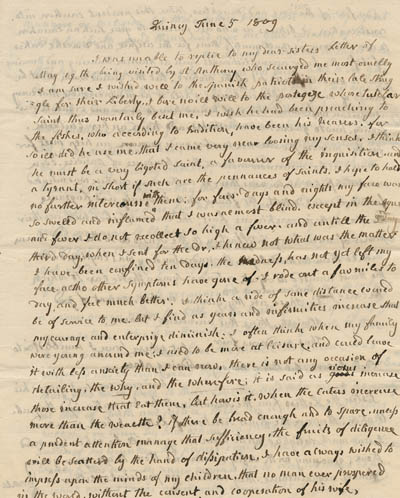 Quincy June 5 1809
I was unable to replie to my dear Sisters Letter of
May 19th being visited by St Anthony who scourged me most cruelly
I am sure I wished well to the Spanish patriots in their late Strug
gle for their Liberty, I bore no ill will to the whose
Saint thus wantonly beset me, I wish he had been preaching to
the fishes, who according to tradition, have been his hearers: for
so ill did he use me, that I came very near loosing my senses. I think
he must be a very bigoted Saint, a favourer of the inquisition and
a tyrant, in short if such are the pennances of Saints. I hope to hold
no further intercourse with them: for four days and nights my face was
so swelled and inflamed that I was almost blind. except in the
I do not recollect so high a fever: and untill the
third day, when I sent for the dr. I knew not what was the matter
I have been confined ten days. the redness, has not yet left my
face altho other Symptoms have gone of. I rode out a few miles to
day, and feel much better. I think a ride of some distance would
be of service to me. but I find as years and infirmities increase that
my courage and enterprize diminish. I often think when my family
were young around me, I used to be more at leisure, and could leave
it with less anxiety than I can now, there is not any occasion of
detailing, the why, and the wherefore: it is said as riches increase
those increase that eat them, but how is it, when the Eaters increase
more than the wealth? If there be bread enough and to spare, unless
a prudent attention manage that sufficiency, the fruits of diligence
will be scatterd by the hand of dissipation. I have always wished to
impress upon the minds of my children, that no man ever prospered
in the world, without the consent and cooperation of his wife,